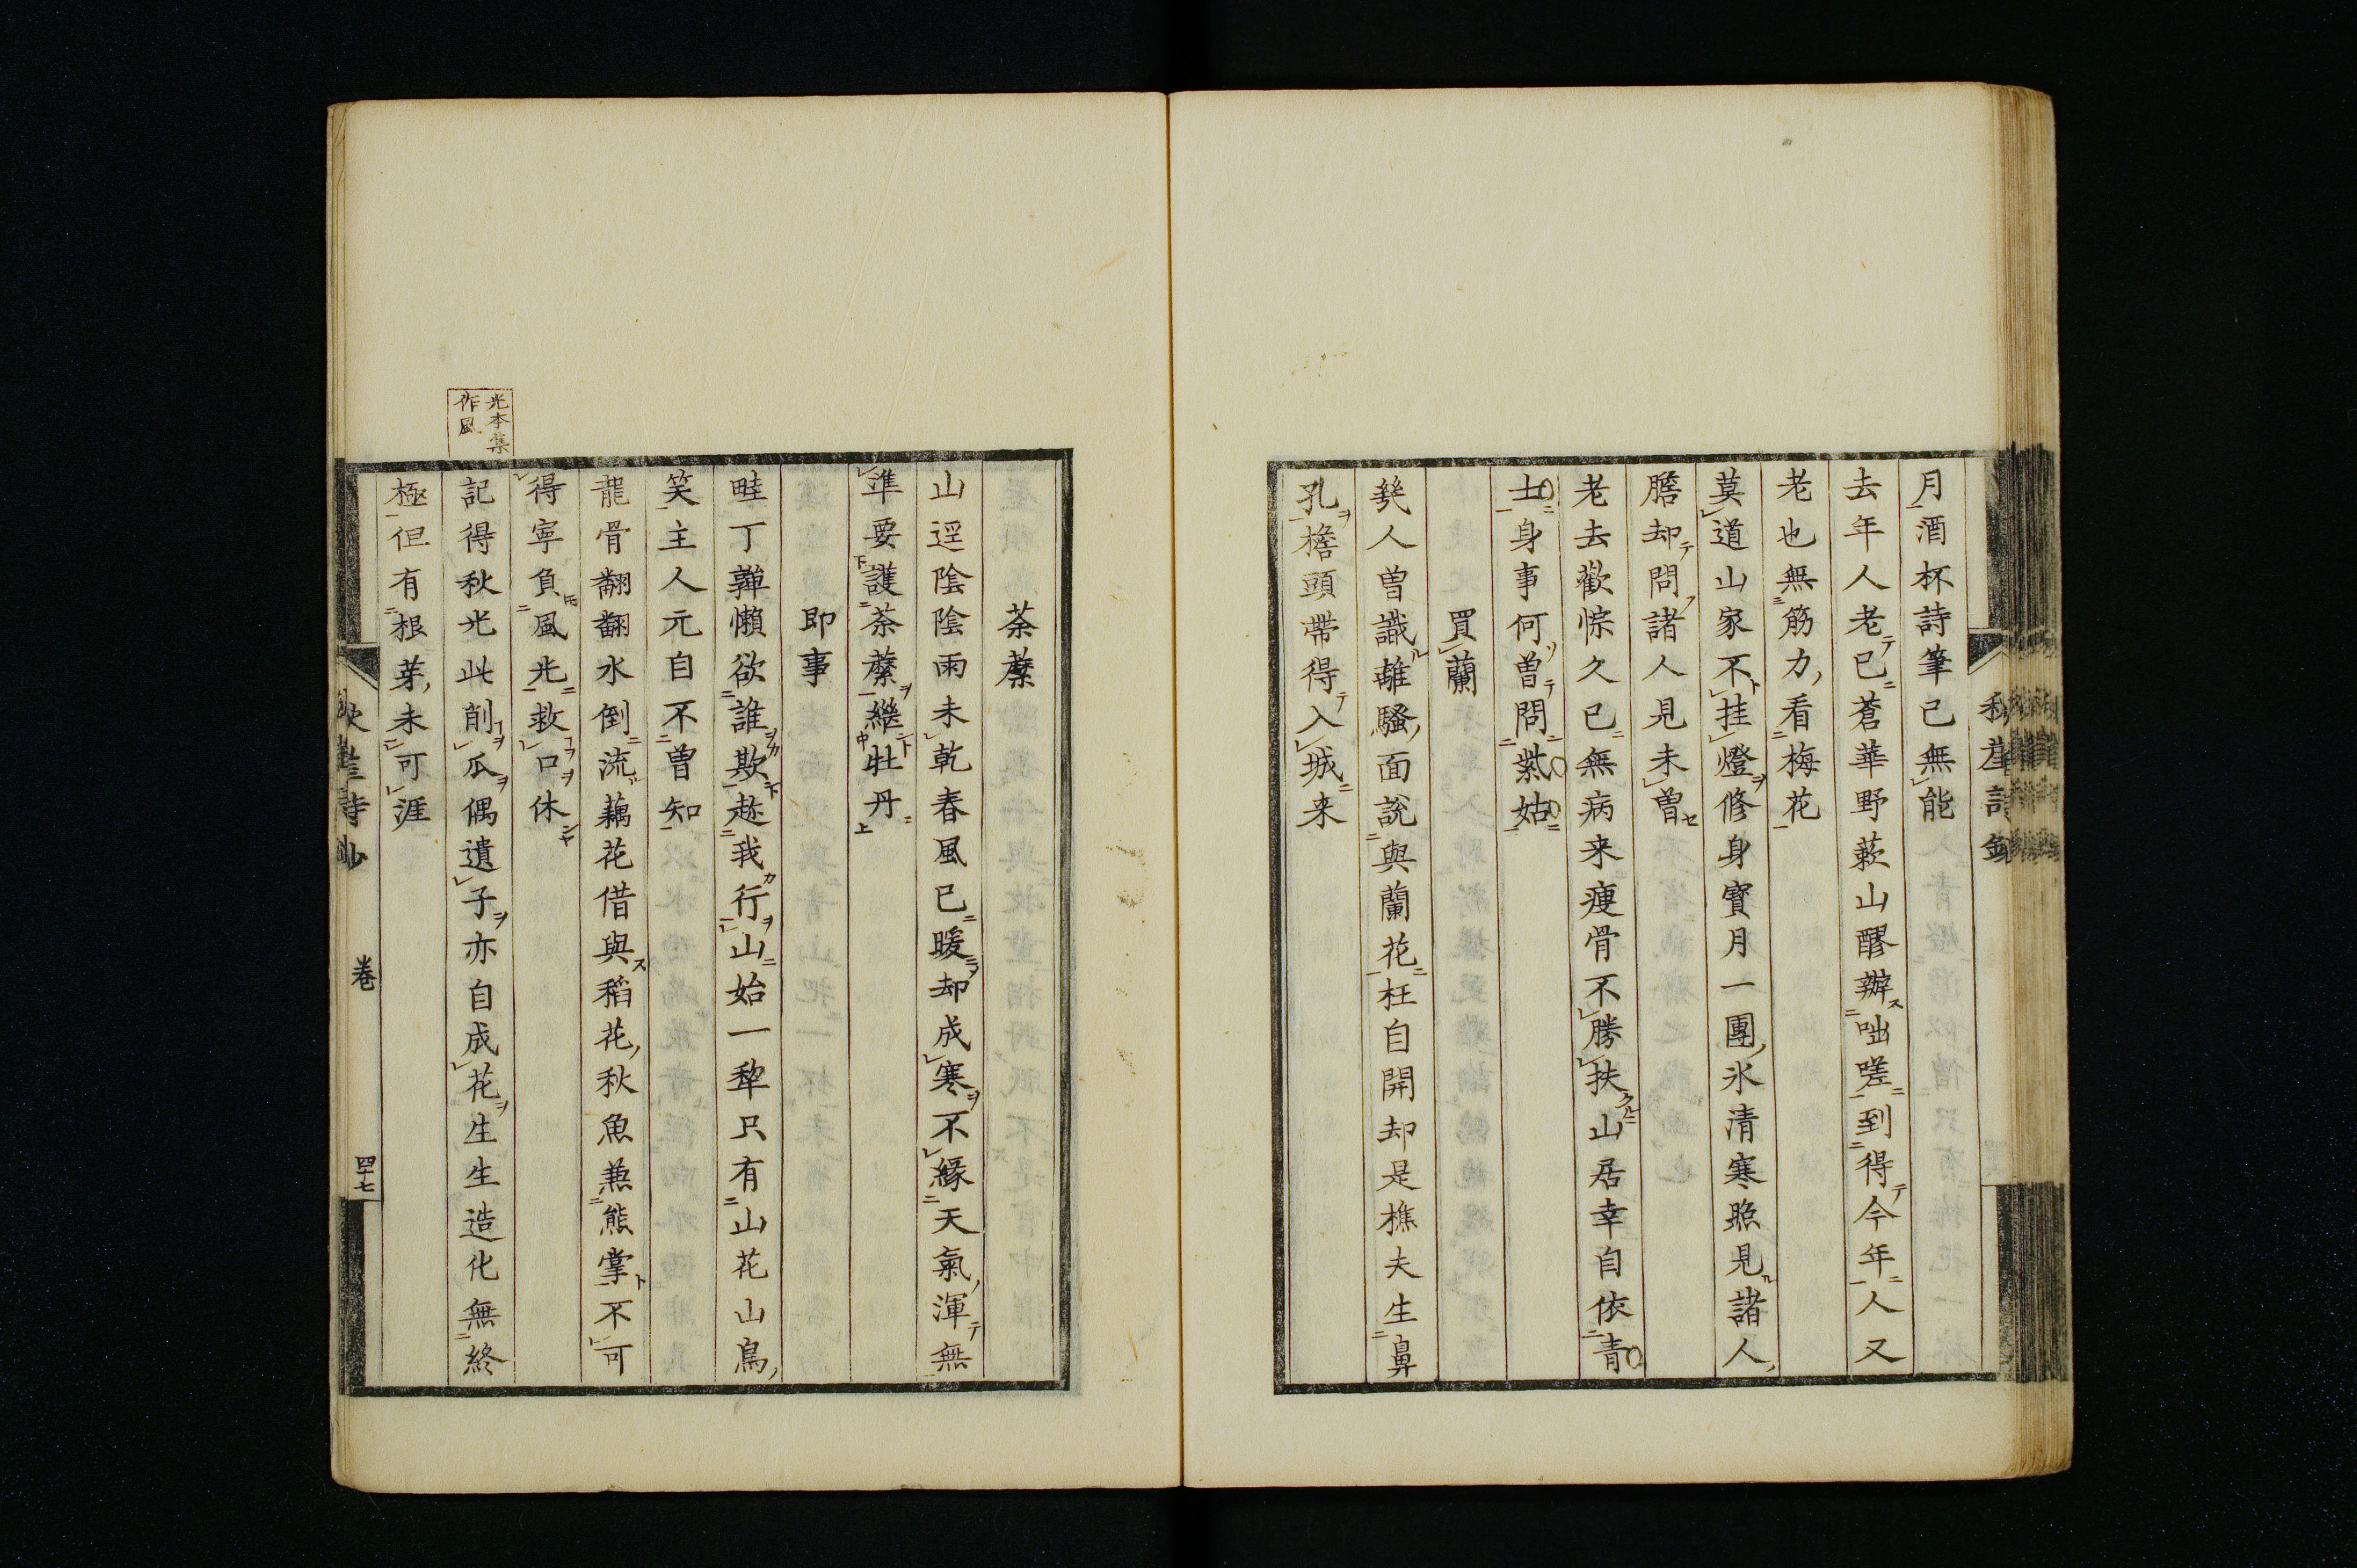 月酒杯詩筆已無能
去年人老已蒼華野蔌山醪辦咄嗟到得今年人又
老也無筋力看梅花
莫道山家不挂燈修身寳月一團氷清寒照見諸人
膽却問諸人見未曽
老去歡悰久已無病来瘦骨不勝扶山居幸自依青
士身事何曽問紫姑
買蘭
幾人曽識離騷面說與蘭花枉自開却是樵夫生鼻
孔檐頭帶得入城来
荼蘪
山逕陰陰雨未乾春風已暖却成寒不縁天氣渾無
準要護荼蘪繼牡丹
即事
畦丁鞾懶欲誰欺趂我行山始一犂只有山花山鳥
笑主人元自不曽知
龍骨翻翻水倒流藕花借與稻花秋魚兼熊掌不可
得寧負風光救口休
光本集
作風
記得秋光此削瓜偶遺子亦自成花生生造化無終
極但有根芽未可涯
秋崖詩鈔
卷
四十七